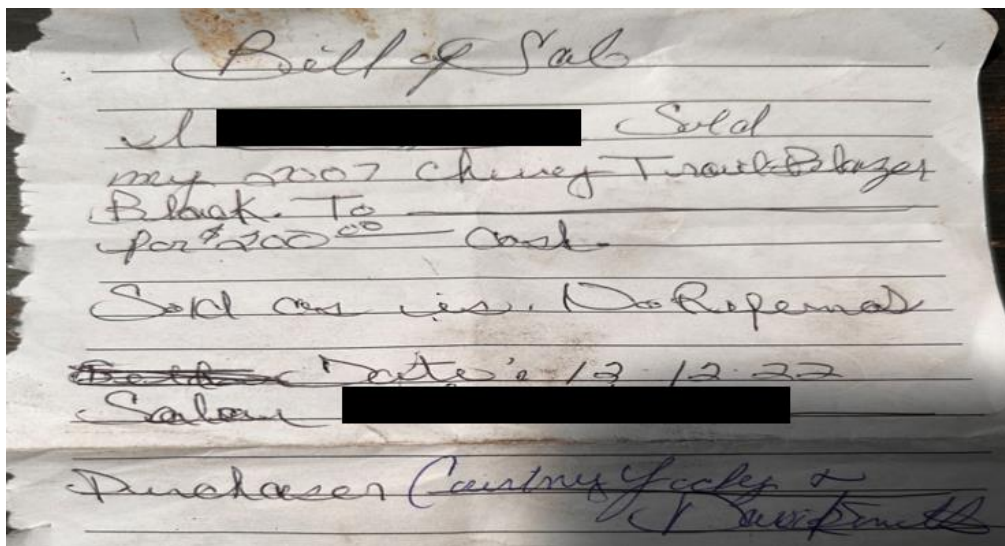 Bill of Sale
I Sold
my 2007 Chevey TrailBlazer
Black. To
for $200.00 cash.
Sold as is. No Refernds
Date: 12-12-22
Saler
Purchaser Courtney &
David Smith